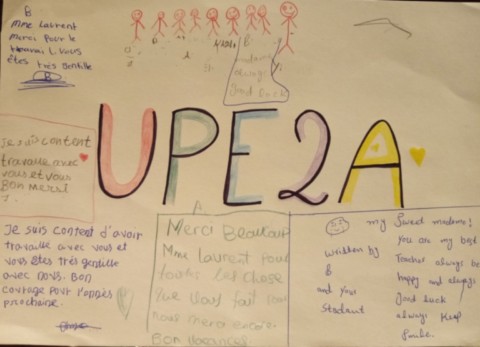 B
Mme Laurent
Merci pour le
travail. vous
êtes très gentille
B
always
Good Luck
UPE2A
Je suis content
travaille avec
vous et vous
Bon Merci
Je suis content d'avoir
travaille avec vous et
vous êtes très gentille
avec nous. Bon
courage pour l'année
prochaine.
A
Merci Beaucoup
Mme Laurent pour
toutes les chose
que vous fait pour
nous merci encore.
Bon vacances
my Sweet madame!
you are my best
Teacher always be
happy and always
Good luck
always Keep
Smile.
written by
B
and your
Student